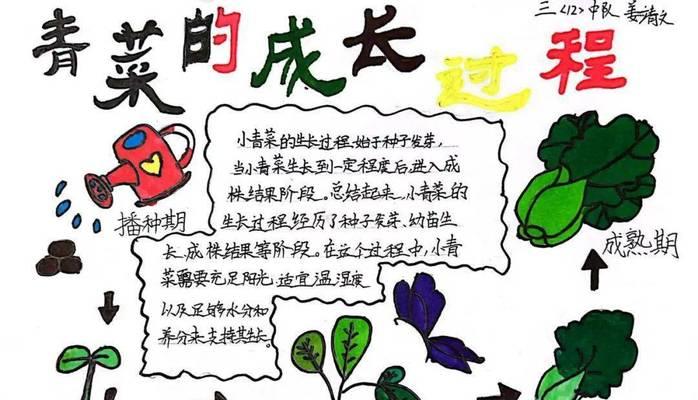 三〈12〉中队 姜清文
青菜的成长过程
小青菜的生长过程,始于种子发芽,
当小青菜生长到一定程度后,进入成
株结果阶段。总结起来,小青菜的
生长过程,经历了种子发芽、幼苗生
长、成株结果等阶段。在这个过程中,小青
菜需要充足阳光,适宜温湿度
以及足够水分和
养分来支持其生长。
播种期
成熟期